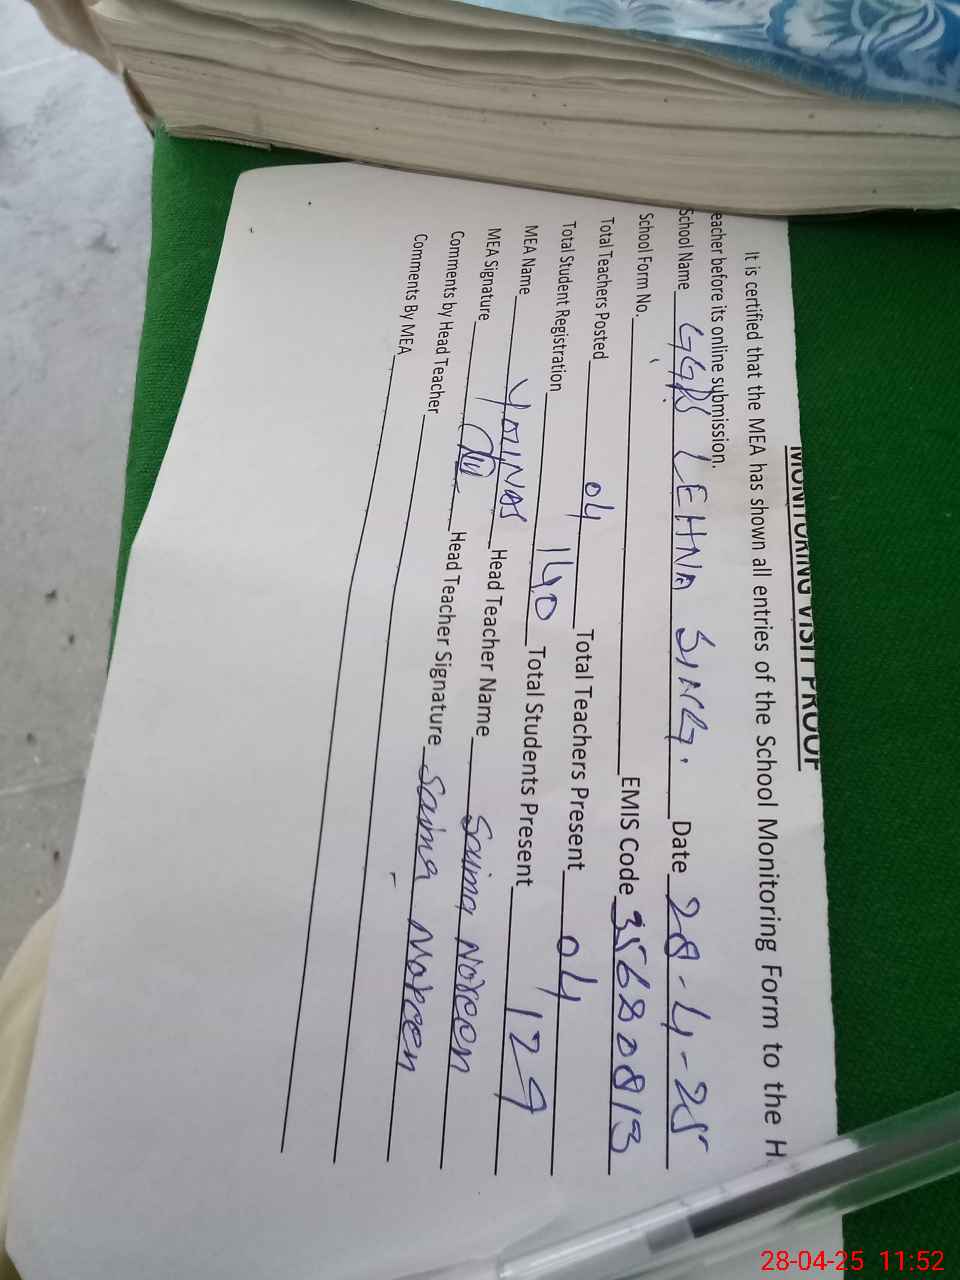 MONITORING VISIT PROOF
It is certified that the MEA has shown all entries of the School Monitoring Form to the H
eacher before its online submission.
School Name GGPS LEHNA SING. Date 28-4-25
School Form No. EMIS Code 35680813
Total Teachers Posted 04 Total Teachers Present 04
Total Student Registration 140 Total Students Present 129
MEA Name YOUNAS Head Teacher Name Saima Noreen
MEA Signature Head Teacher Signature Saima Noreen
Comments by Head Teacher
Comments By MEA
28-04-25 11:52